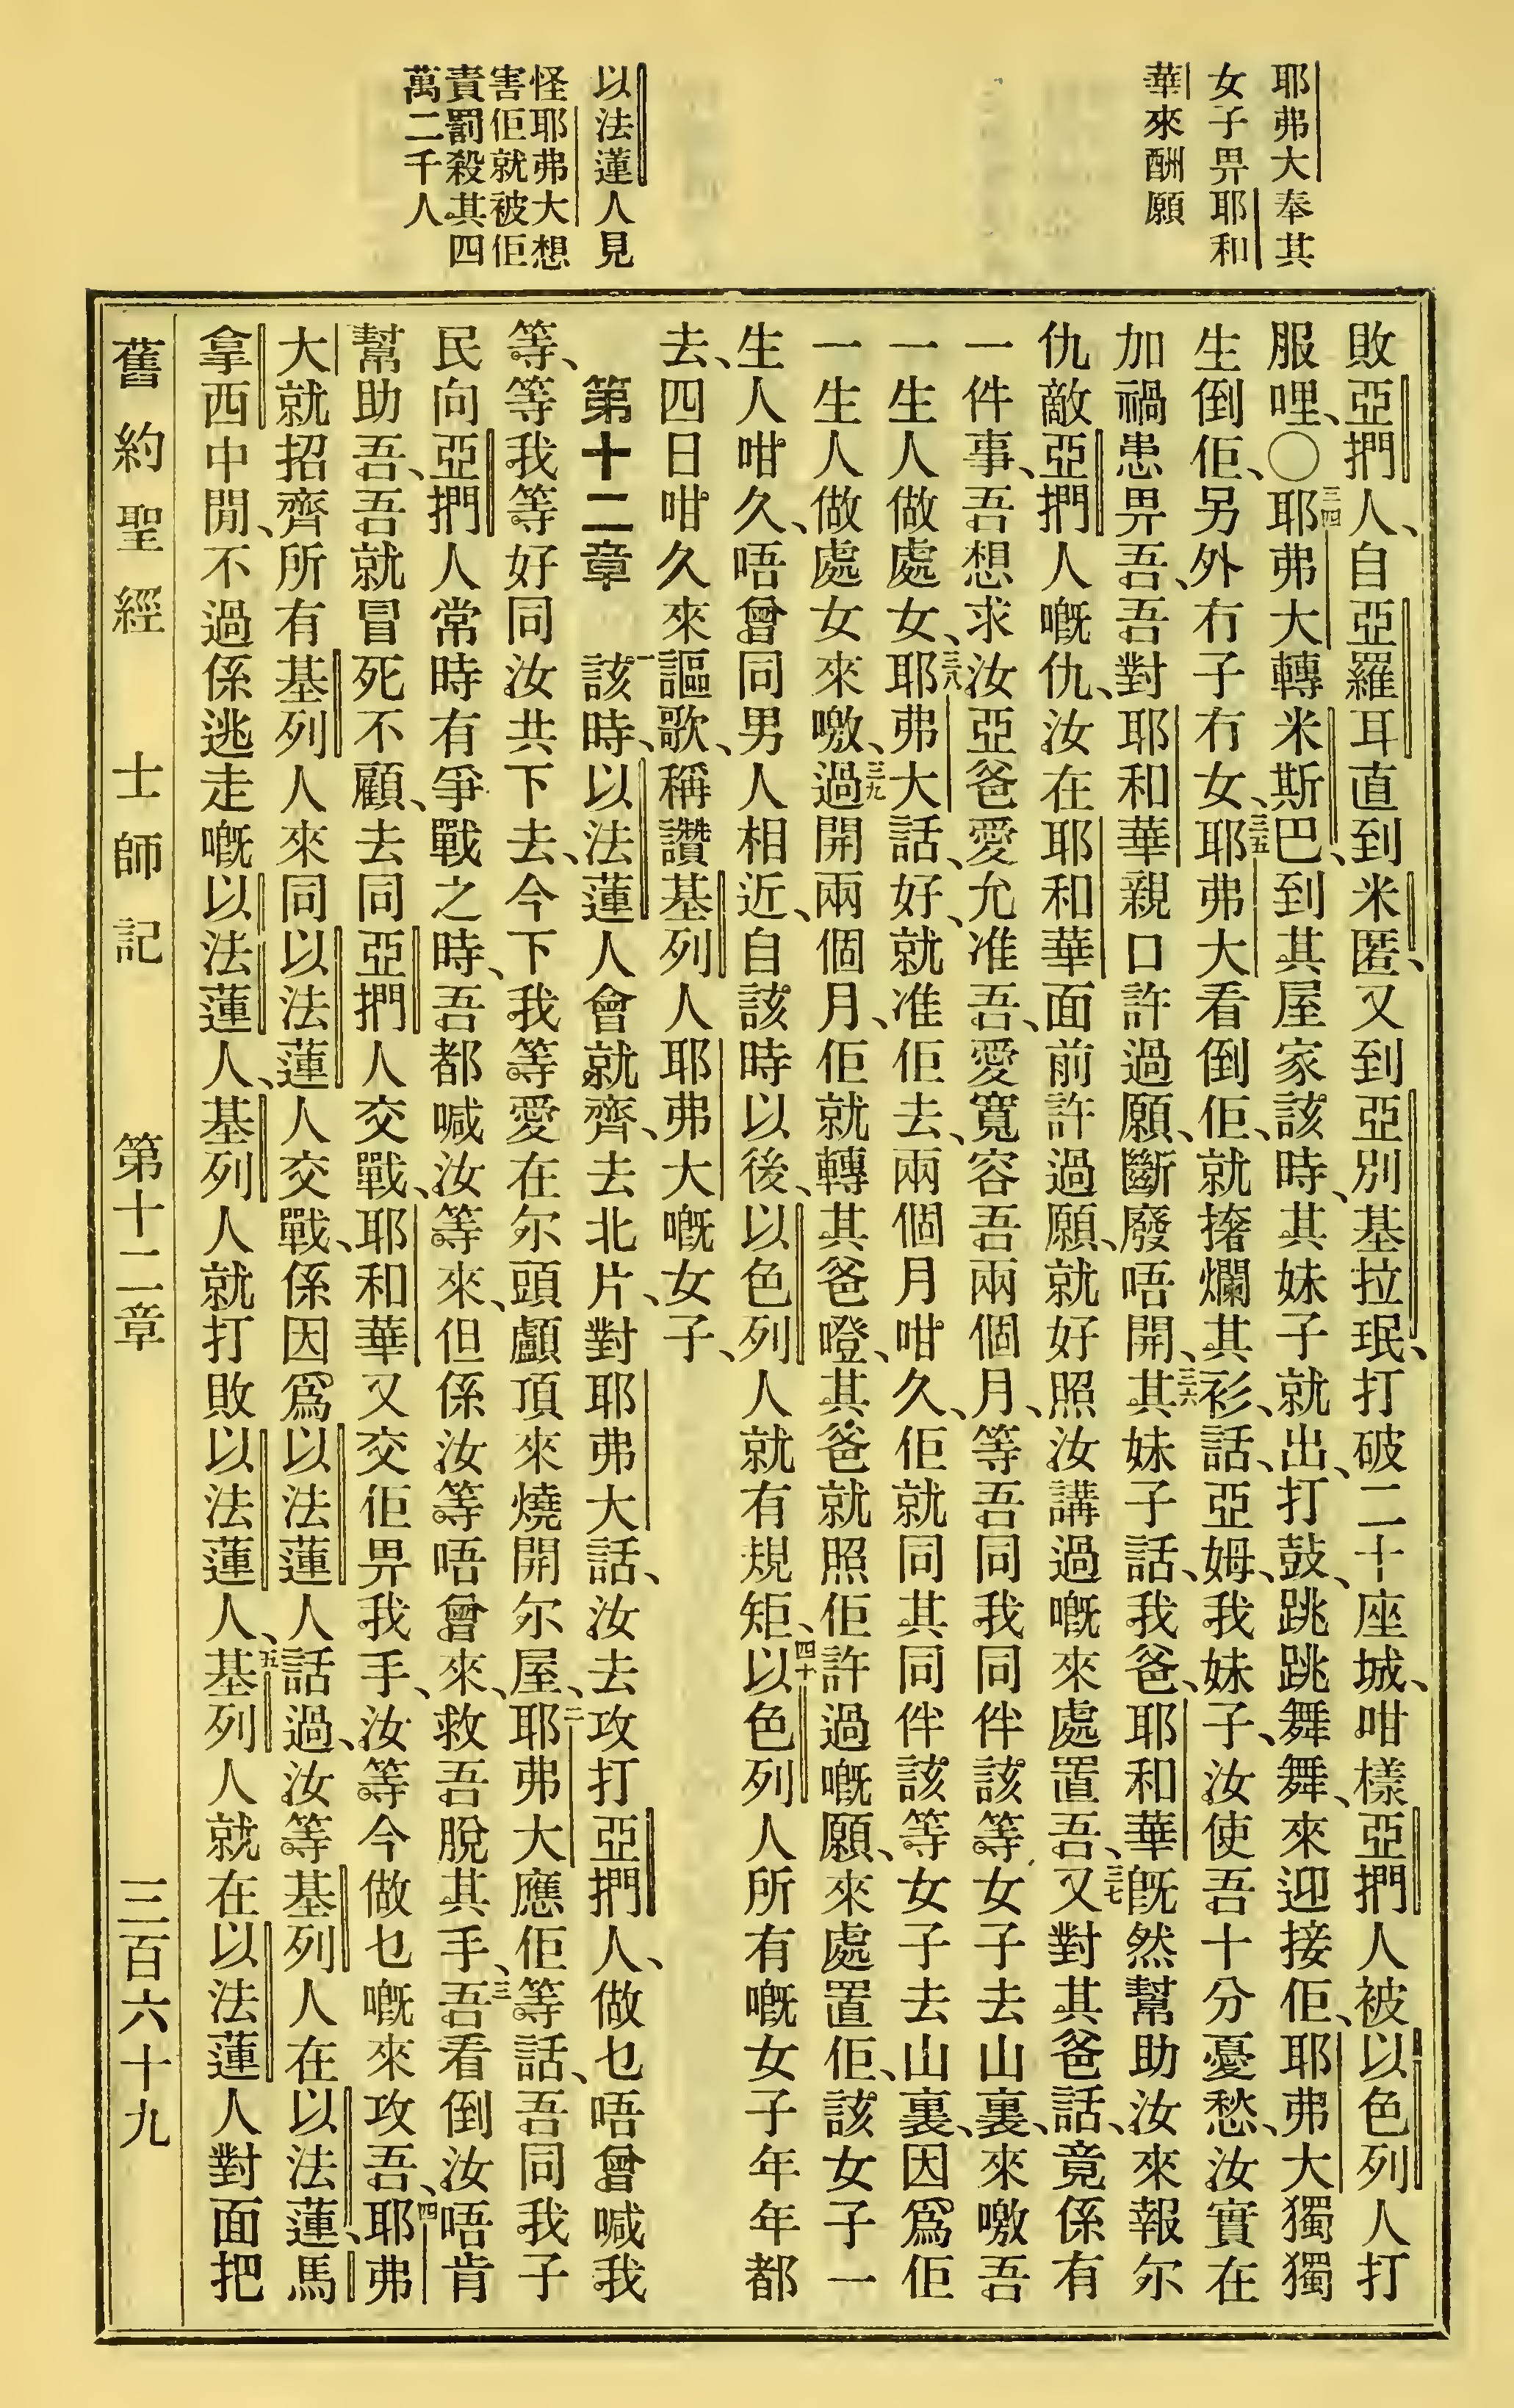 耶弗大奉其
女子畀耶和
華來酬願
以法蓮人見
怪耶弗大想
害佢就被佢
責罰殺其四
萬二千人
敗亞捫人、自亞羅耳直到米匿、又到亞別基拉珉、打破二十座城、咁樣亞捫人被以色列人打
服哩、〇三四耶弗大轉米斯巴、到其屋家該時、其妹子就出、打鼓、跳跳舞舞、來迎接佢、耶弗大獨獨
生倒佢、另外冇子冇女、三五耶弗大看倒佢、就撦爛其衫、話、亞姆、我妹子、汝使吾十分憂愁、汝實在
加禍患畀吾、吾對耶和華親口許過願、斷廢唔開、三六其妹子話、我爸、耶和華旣然幫助汝來報尔
仇敵亞捫人嘅仇、汝在耶和華面前許過願、就好照汝講過嘅來處置吾、三七又對其爸話、竟係有
一件事、吾想求汝亞爸愛允准吾、愛寬容吾兩個月、等吾同我同伴該等女子去山裏、來噭吾
一生人做處女、三八耶弗大話、好、就准佢去、兩個月咁久、佢就同其同伴該等女子去山裏、因爲佢
一生人做處女來噭、三九過開兩個月、佢就轉其爸嶝、其爸就照佢許過嘅願、來處置佢、該女子一
生人咁久、唔曾同男人相近、自該時以後、以色列人就有規矩、四十以色列人所有嘅女子年年都
去、四日咁久來謳歌、稱讚基列人耶弗大嘅女子、
第十二章 一該時、以法蓮人會就齊、去北片、對耶弗大話、汝去攻打亞捫人、做乜唔曾喊我
等、等我等好同汝共下去、今下我等愛在尔頭顱頂來燒開尔屋、二耶弗大應佢等話、吾同我子
民向亞捫人常時有爭戰之時、吾都喊汝等來、但係汝等唔曾來、救吾脫其手、三吾看倒汝唔肯
幫助吾、吾就冒死不顧、去同亞捫人交戰、耶和華又交佢畀我手、汝等今做乜嘅來攻吾、四耶弗
大就招齊所有基列人來同以法蓮人交戰、係因爲以法蓮人話過、汝等基列人在以法蓮、馬
拿西中間、不過係逃走嘅以法蓮人、基列人就打敗以法蓮人、五基列人就在以法蓮人對面把
舊約聖經 士師記 第十二章 三百六十九